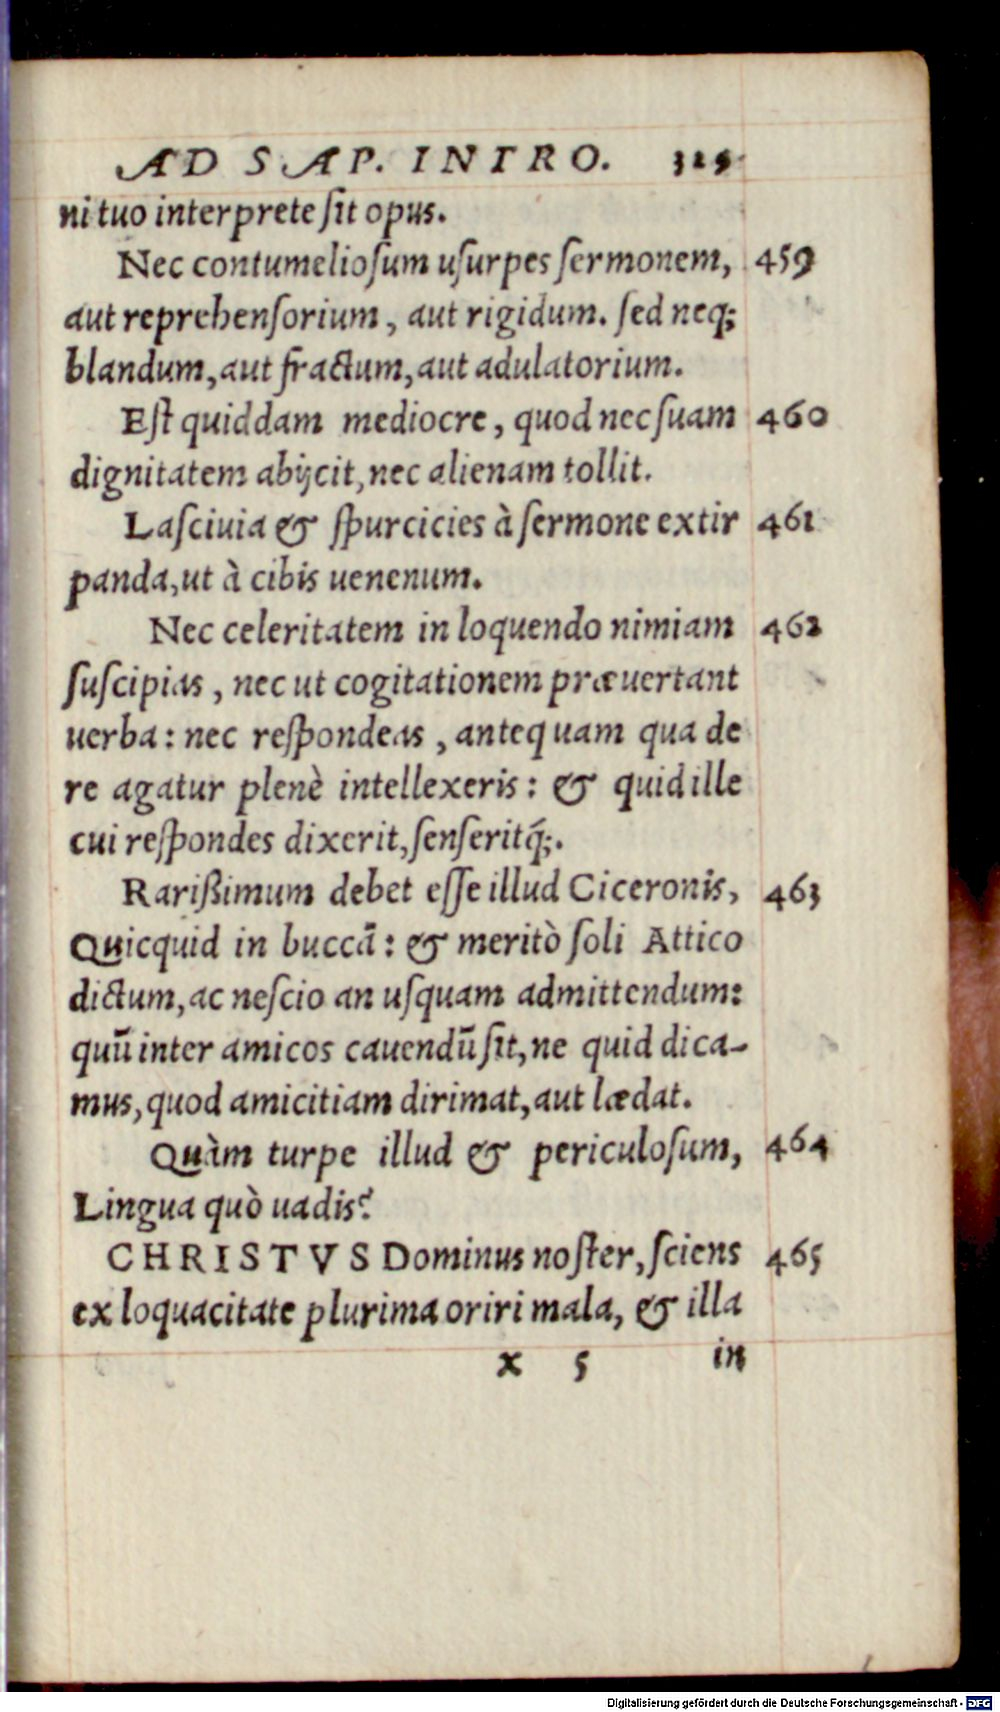 AD SAP. INTRO. 329
ni tuo interprete ſit opus.
Nec contumelioſum uſurpes ſermonem, 459
aut reprehenſorium, aut rigidum. ſed neq;
blandum, aut fractum, aut adulatorium.
Eſt quiddam mediocre, quod nec ſuam 460
dignitatem abijcit, nec alienam tollit.
Laſciuia & ſpurcicies à ſermone extir 461
panda, ut à cibis uenenum.
Nec celeritatem in loquendo nimiam 462
ſuſcipias, nec ut cogitationem præuertant
uerba: nec reſpondeas, antequam qua de
re agatur plenè intellexeris: & quid ille
cui reſpondes dixerit, ſenſeritq́;.
Rarißimum debet eſſe illud Ciceronis, 463
Quicquid in buccā: & meritò ſoli Attico
dictum, ac neſcio an uſquam admittendum:
quū inter amicos cauendū ſit, ne quid dica-
mus, quod amicitiam dirimat, aut lædat.
Quàm turpe illud & periculoſum, 464
Lingua quò uadis?
CHRISTVS Dominus noſter, ſciens 465
ex loquacitate plurima oriri mala, & illa
x 5 in
Digitalisierung gefördert durch die Deutsche Forschungsgemeinschaft - DFG